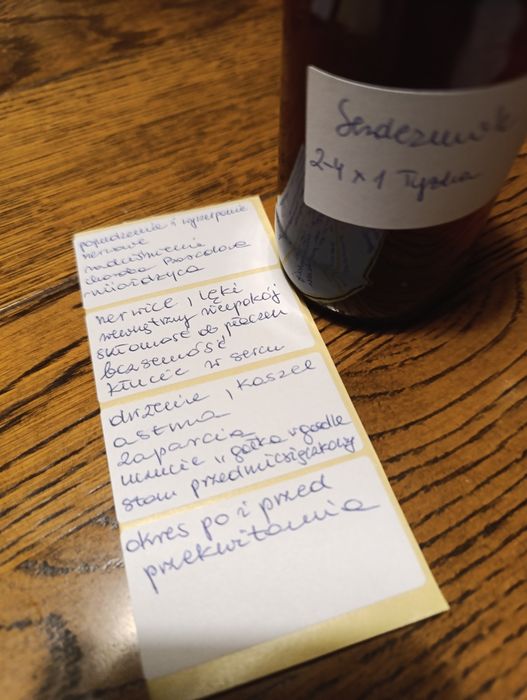 Serdecznik
2-4 x 1 łyżka
pobudzenie i wyczerpanie
nerwowe
nadciśnienie
choroba Basedowa
miażdżyca
nerwice, lęki
wewnętrzny niepokój
skłonność do płaczu
bezsenność
kłucie w sercu
drżenie, kaszel
astma
zaparcia
uczucie "gałka w gardle
stan przedmiesiączkowy
okres po i przed
przekwitania